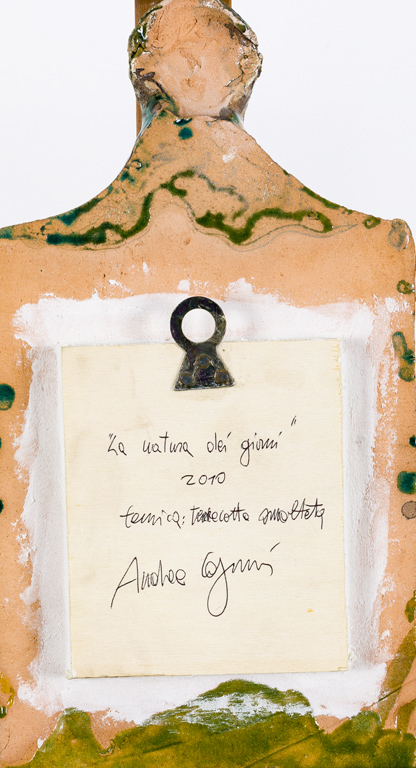 "La natura dei giorni"
2010
tecnica: terracotta smaltata
Andrea